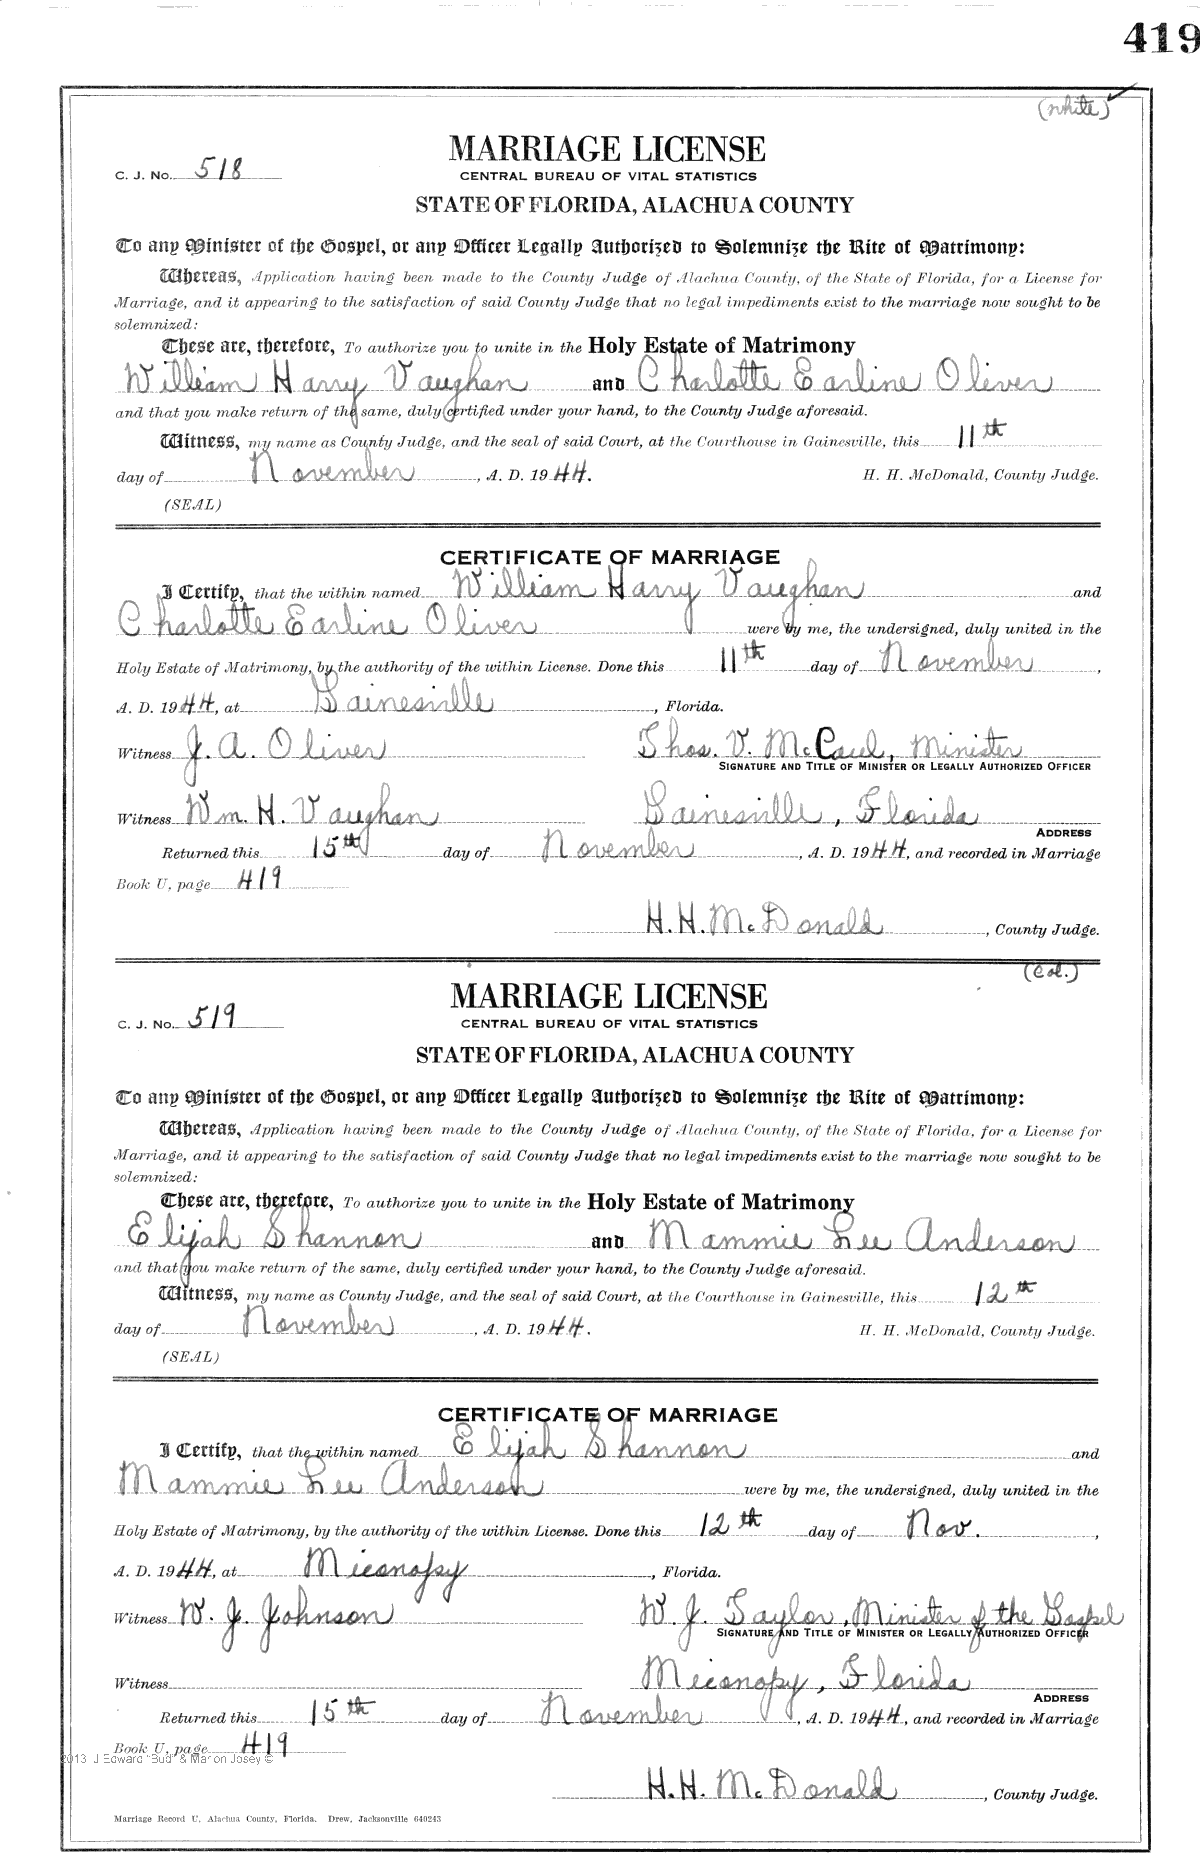 419
(white)
MARRIAGE LICENSE
C. J. No. 518
CENTRAL BUREAU OF VITAL STATISTICS
STATE OF FLORIDA, ALACHUA COUNTY
To any Minister of the Gospel, or any Officer Legally Authorized to Solemnize the Rite of Matrimony:
Whereas, Application having been made to the County Judge of Alachua County, of the State of Florida, for a License for
Marriage, and it appearing to the satisfaction of said County Judge that no legal impediments exist to the marriage now sought to be
solemnized:
These are, therefore, To authorize you to unite in the Holy Estate of Matrimony
William Harry Vaughan and Charlotte Earline Oliver
and that you make return of the same, duly certified under your hand, to the County Judge aforesaid.
Witness, my name as County Judge, and the seal of said Court, at the Courthouse in Gainesville, this 11th
day of November, A. D. 1944. H. H. McDonald, County Judge.
(SEAL)
CERTIFICATE OF MARRIAGE
I Certify, that the within named William Harry Vaughan and
Charlotte Earline Oliver were by me, the undersigned, duly united in the
Holy Estate of Matrimony, by the authority of the within License. Done this 11th day of November,
A. D. 1944, at Gainesville, Florida.
Witness J. A. Oliver Thos. V. McCaul, Minister
SIGNATURE AND TITLE OF MINISTER OR LEGALLY AUTHORIZED OFFICER
Witness Wm. H. Vaughan Gainesville, Florida
ADDRESS
Returned this 15th day of November, A. D. 1944, and recorded in Marriage
Book U, page 419
H. H. McDonald, County Judge.
(Col.)
MARRIAGE LICENSE
C. J. No. 519
CENTRAL BUREAU OF VITAL STATISTICS
STATE OF FLORIDA, ALACHUA COUNTY
To any Minister of the Gospel, or any Officer Legally Authorized to Solemnize the Rite of Matrimony:
Whereas, Application having been made to the County Judge of Alachua County, of the State of Florida, for a License for
Marriage, and it appearing to the satisfaction of said County Judge that no legal impediments exist to the marriage now sought to be
solemnized:
These are, therefore, To authorize you to unite in the Holy Estate of Matrimony
Elijah Shannon and Mammie Lee Anderson
and that you make return of the same, duly certified under your hand, to the County Judge aforesaid.
Witness, my name as County Judge, and the seal of said Court, at the Courthouse in Gainesville, this 12th
day of November, A. D. 1944. H. H. McDonald, County Judge.
(SEAL)
CERTIFICATE OF MARRIAGE
I Certify, that the within named Elijah Shannon and
Mammie Lee Anderson were by me, the undersigned, duly united in the
Holy Estate of Matrimony, by the authority of the within License. Done this 12th day of Nov.,
A. D. 1944, at Miconopy, Florida.
Witness W. J. Johnson W. J. Taylor, Minister of the Gospel
SIGNATURE AND TITLE OF MINISTER OR LEGALLY AUTHORIZED OFFICER
Witness Miconopy, Florida
ADDRESS
Returned this 15th day of November, A. D. 1944, and recorded in Marriage
Book U, page 419
2013 J Edward "Bud" & Marion Josey ©
H. H. McDonald, County Judge.
Marriage Record U, Alachua County, Florida. Drew, Jacksonville 640243